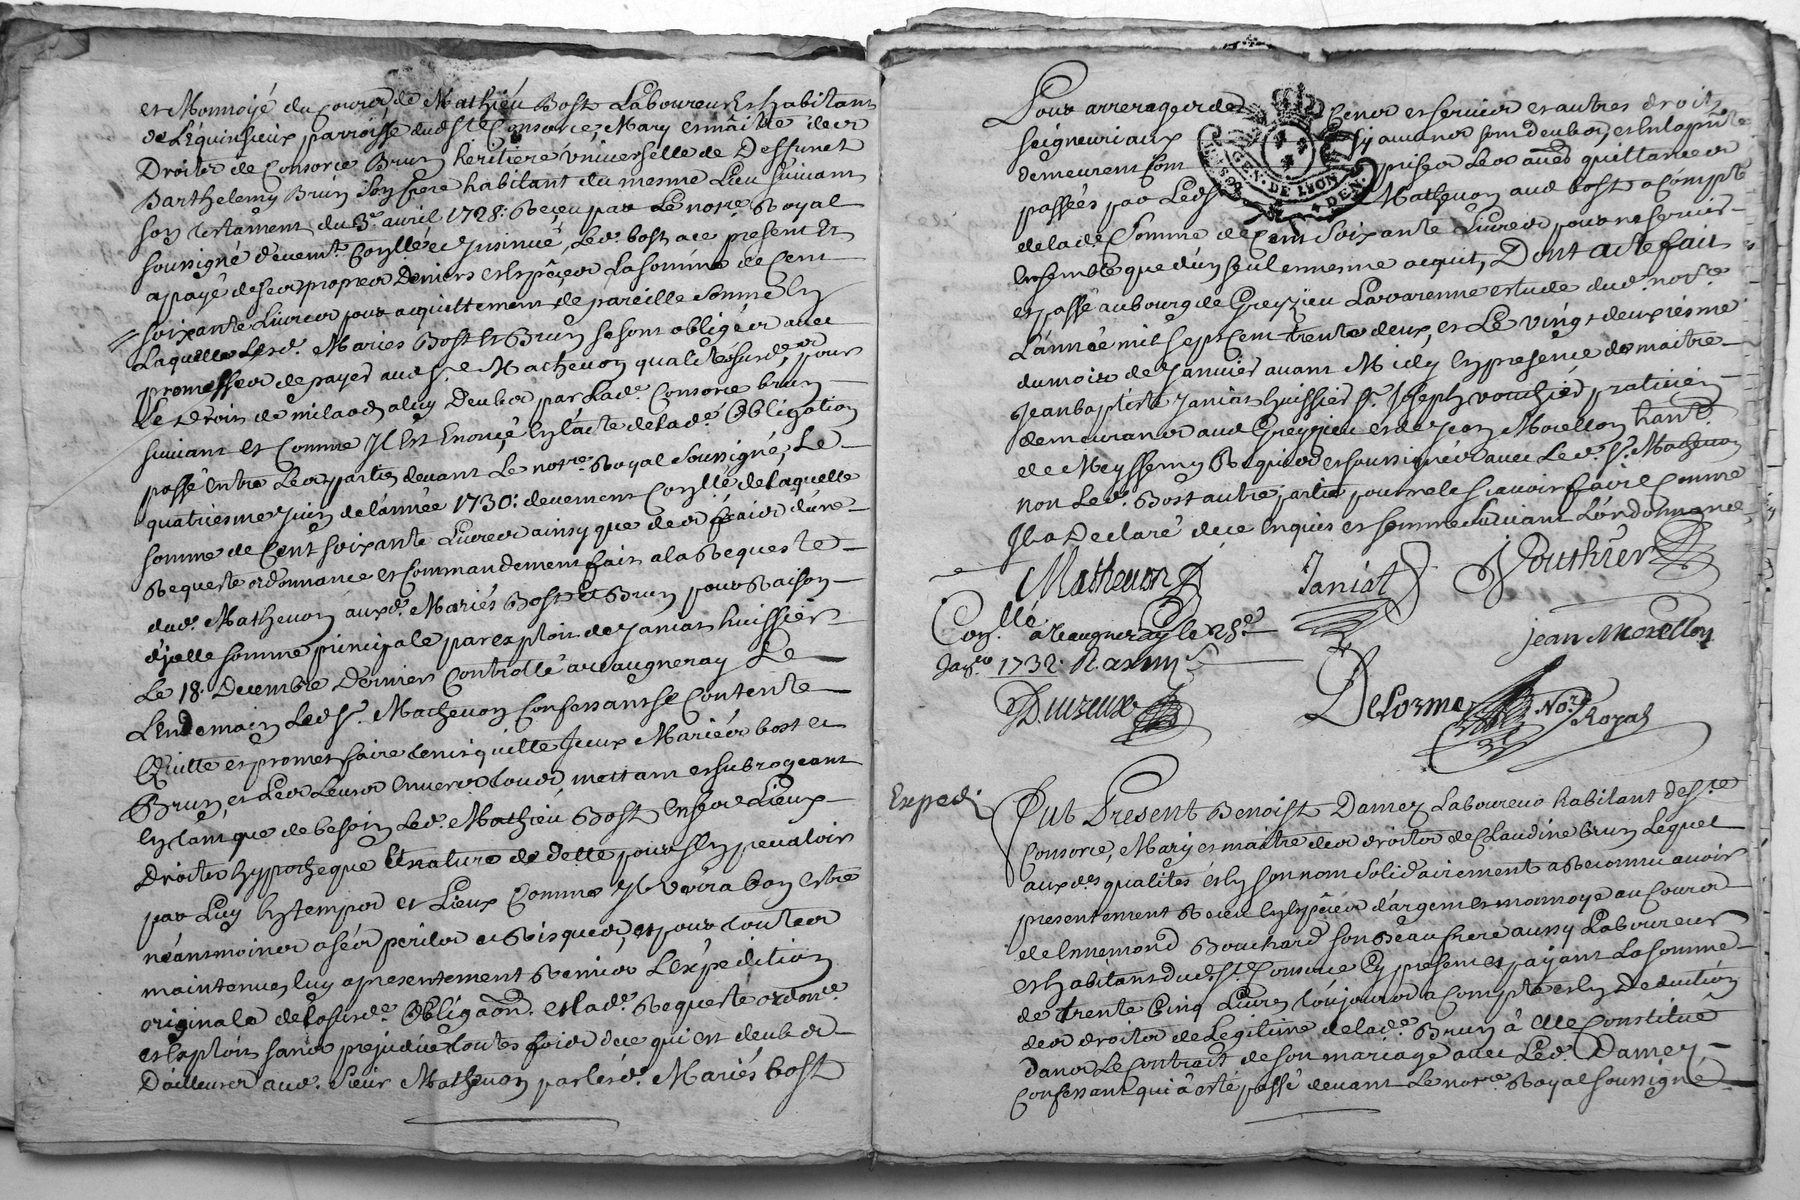 et Monnoyé du Cours de Mathieu Bost Laboureur Et habitant
de Lequinsieux parroisse dud. St Consorce, Mary et mâitre des
Droits de Consorce Brun heritiere universelle de Deffunct
Barthelemy Brun Son frere habitant du mesme Lieu suivant
son testament du 3e avril 1728: Receu par Le nore Royal
soussigné deuemt Conllé et Insinué, Led. bost a ce present Et
a payé de ses propres Deniers et Espèces La somme de Cent
soixante Livres pour acquittement de pareille Somme En
Laquelle Lesd. Mariés Bost Et Brun se sont obligés avec
promesses de payer aud. Sr Mathevon qualité susd. pour
Le Droit de milaods a luy Deubs par Lad. Consorce brun
suivant Et Comme Il Est Enoncé En L'acte de Lad. Obligation
passé Entre Les parties devant Le notre Royal Soussigné, Le
quatriesme Juin de L'année 1730: deuement Conllé de Laquelle
somme de Cent soixante Livres ainsy que des fraix d'une
Requeste ordonnance et Commandement fait a la Requeste
dud. Mathevon auxd. Mariés Bost Et Brun pour Raison
d'jcelle somme principale par exploit de Janiat huissier
Le 18. Decembre Dernier Controllé a Vaugneray Le
Lendemain Led. Sr. Mathevon Confessant se Contente
Quitte et promet faire tenir quitte Iceux Mariés bost et
Brun et Les Leurs Envers tous, mettant et subrogeant
En tant que de besoin Led. Mathieu Bost En ses Lieux
Droits hyppotheque Et nature de dette pour s'En prevaloir
par Luy En temps et Lieux Comme Il verra bon estre
néansmoins a ses perils et Risques, et pour toutes
maintenues luy a presentement Remis L'expedition
originale de La susd. Obligaon. et Lad. Requeste ordonce
et Exploit sans prejudice toutes fois de ce qui est deub
D'ailleurs aud. Sieur Mathevon par Lesd. Mariés bost
Pour arrerages de Cens et servis et autres droits
seigneuriaux
demeurent Com quittances
passées par Led. Sr Mathevon aud bost a Compte
de lad. Somme de Cent Soixante Livres pour ne servir
Ensemble que d'un seul et mesme acquit, Dont acte fait
et passé au bourg de Greyzieu Lavarenne estude dud. notre
L'année mil sept Cent trente deux, et Le vingt deuxiesme
du mois de Janvier avant Midy En presence de maitre
Jean baptiste Janiat huissier Sr. Joseph vouthier praticien
demeurants aud Greyzieu et de Jean Morellon habt.
de Meyssemy Requis et soussignés avec Led. Sr. Mathevon
non Led. Bost autre partie pour ne le sçavoir faire Comme
Il a Declaré de ce Enquis et sommé suivant L'ordonnance
Mathevon
Janiat
Vouthier
Conllé a Vaugneray le 28e
Janer 1732.
jean Morellon
Duizeux
Delorme No.re Royal
GEN. DE LYON
Exped.
Fut Present Benoist Damez Laboureur habitant de Ste
Consorce, Mary et maitre des droits de Claudine brun Lequel
auxd. qualités et En son nom solidairement a Reconnu avoir
presentement Receu En Espèces d'argent et monnoye au Cours
de Ennemond Bouchard son Beau frere aussy Laboureur
et habitant dud. St. Consorce Cy present et payant La somme
de trente Cinq Livres toujours a Compte et En Deduction
des droits de Legitime de lad. Brun à Elle Constitué
dans Le Contrait de son mariage avec Led. Damez,
Confessant qui a esté passé devant Le notre Royal soussigné